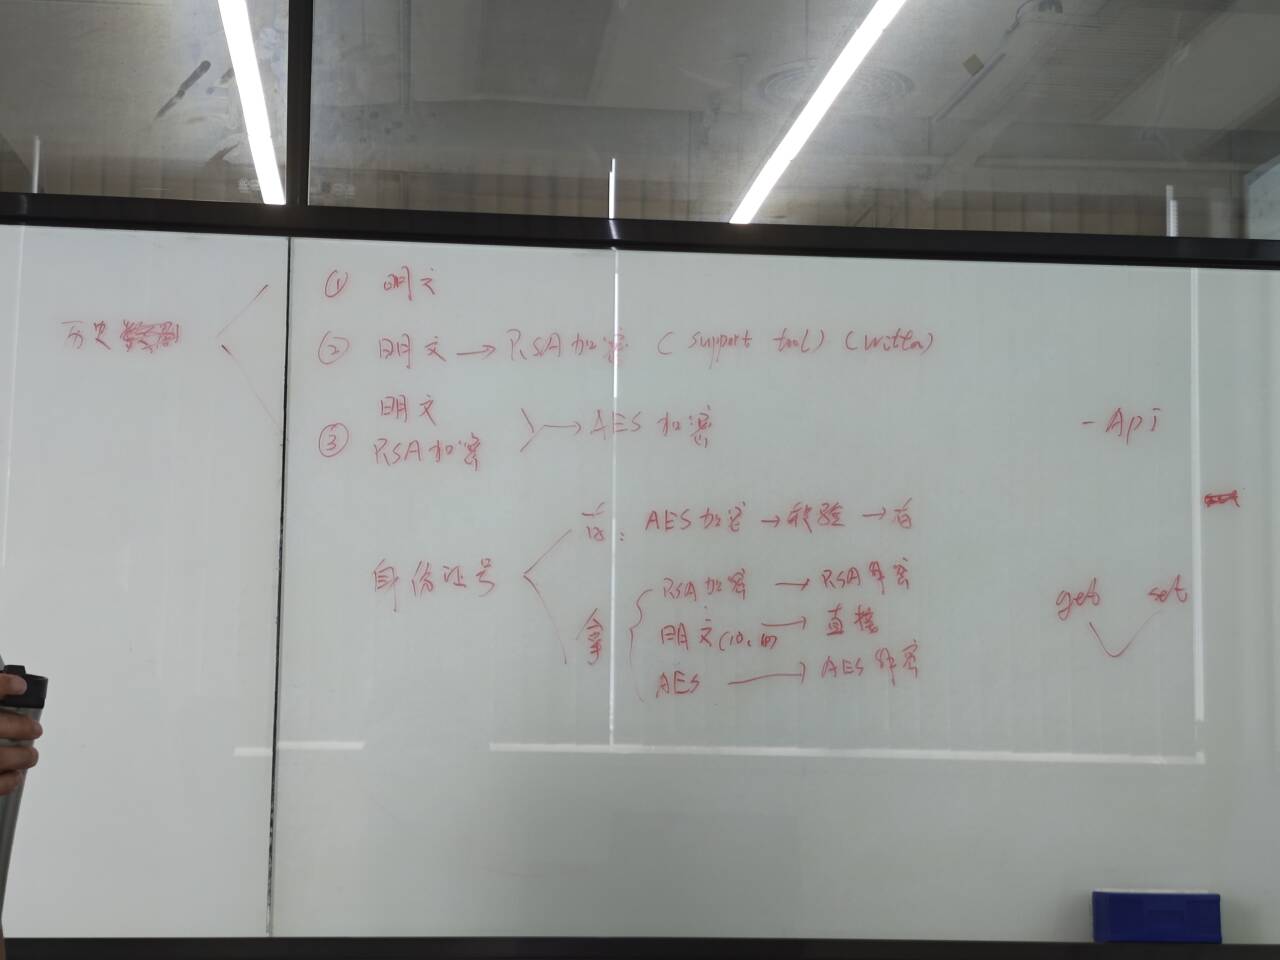 历史数据
① 明文
② 明文 → RSA加密 (support tool) (written)
③ 明文
RSA加密
→ AES 加密
- Api
身份证号
查: AES加密 → 校验 → 存
拿
RSA加密 → RSA解密
明文(10, 11) → 直接
AES → AES解密
get set